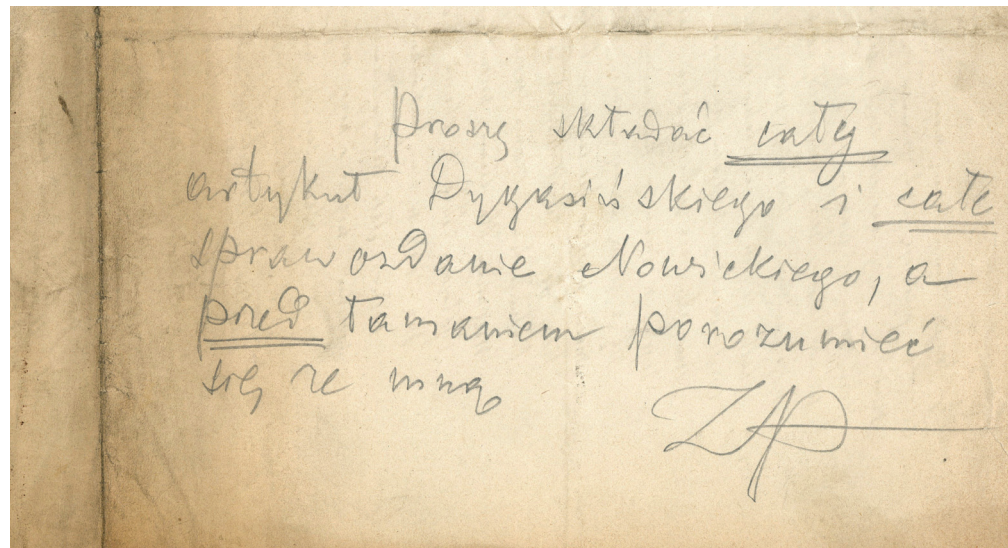 Proszę składać cały
artykuł Dygasińskiego i całe
sprawozdanie Nowickiego, a
przed łamaniem porozumieć
się ze mną
ZP